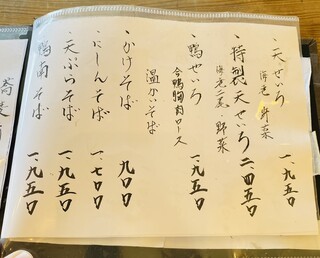 ・天せいろ 一、九五〇
海老・野菜
・特製天せいろ 二、四五〇
海老二尾・野菜
・鴨せいろ 一、九五〇
合鴨胸肉ロース
温かいそば
・かけそば 九〇〇
・にしんそば 一、七〇〇
・天ぷらそば 一、九五〇
鴨南そば 一、九五〇